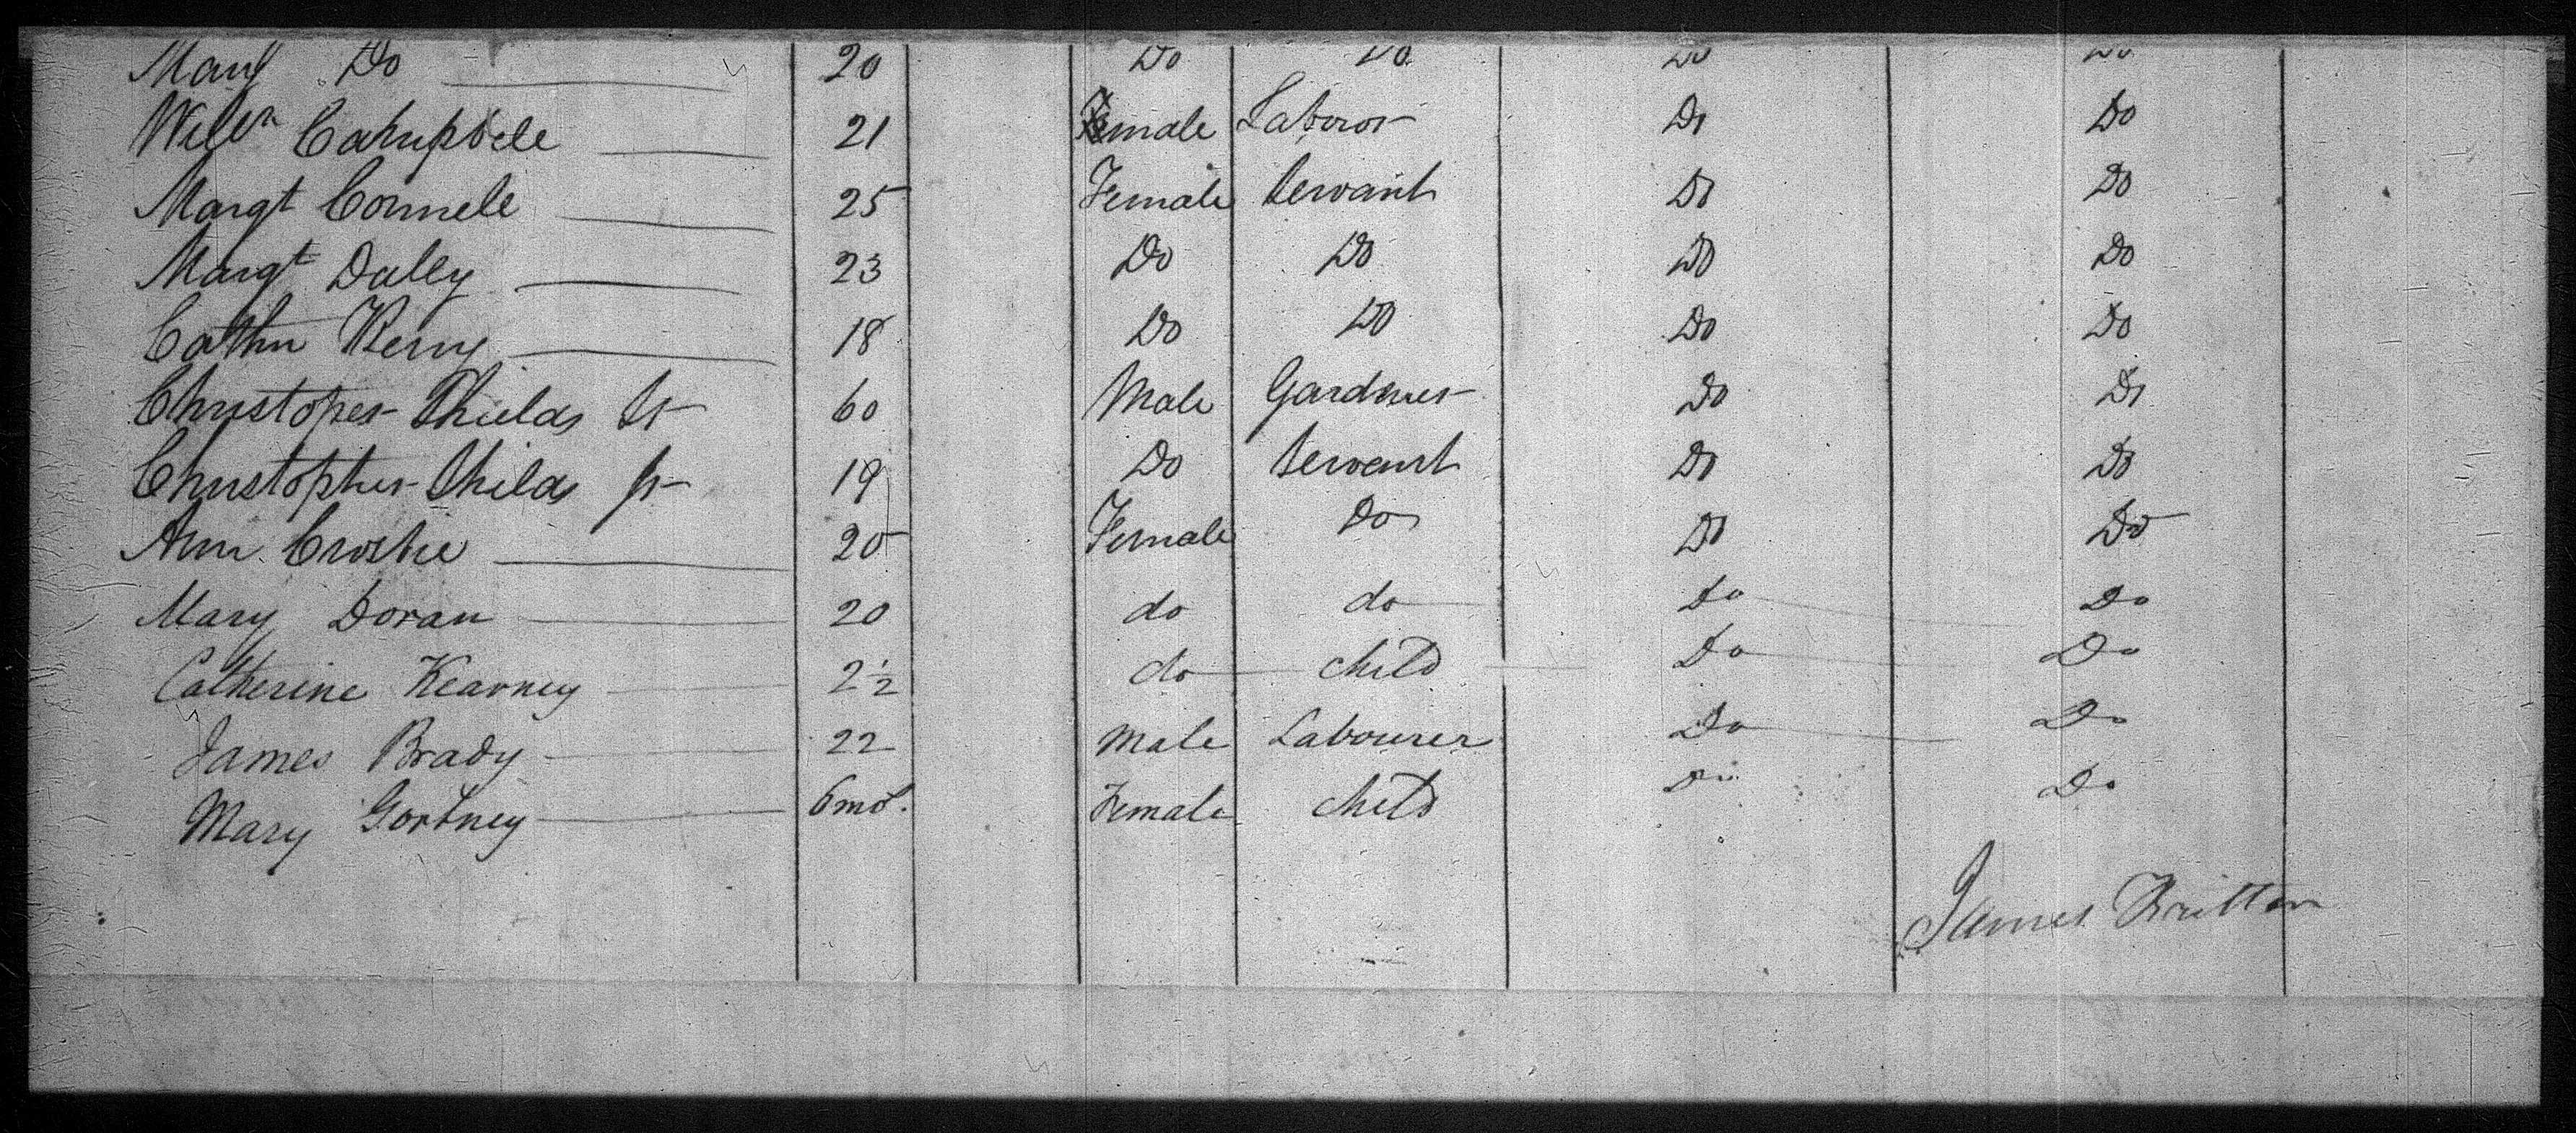 Mary Do 20 Do Do Do Do
Willm Campbell 21 male Laboror Do Do
Margt Connell 25 Female Servant Do Do
Margt Daley 23 Do Do Do Do
Cathn Kerny 18 Do Do Do Do
Christoper Shields Sr 60 Male Gardner Do Do
Christopher Shilds Jr 19 Do Servant Do Do
Ann Crosbie 20 Female Do Do Do
Mary Doran 20 do do Do Do
Catherine Kearney 2 1/2 do child Do Do
James Brady 22 Male Labourer Do Do
Mary Gortney 6 mos. Female child Do Do
James Britton